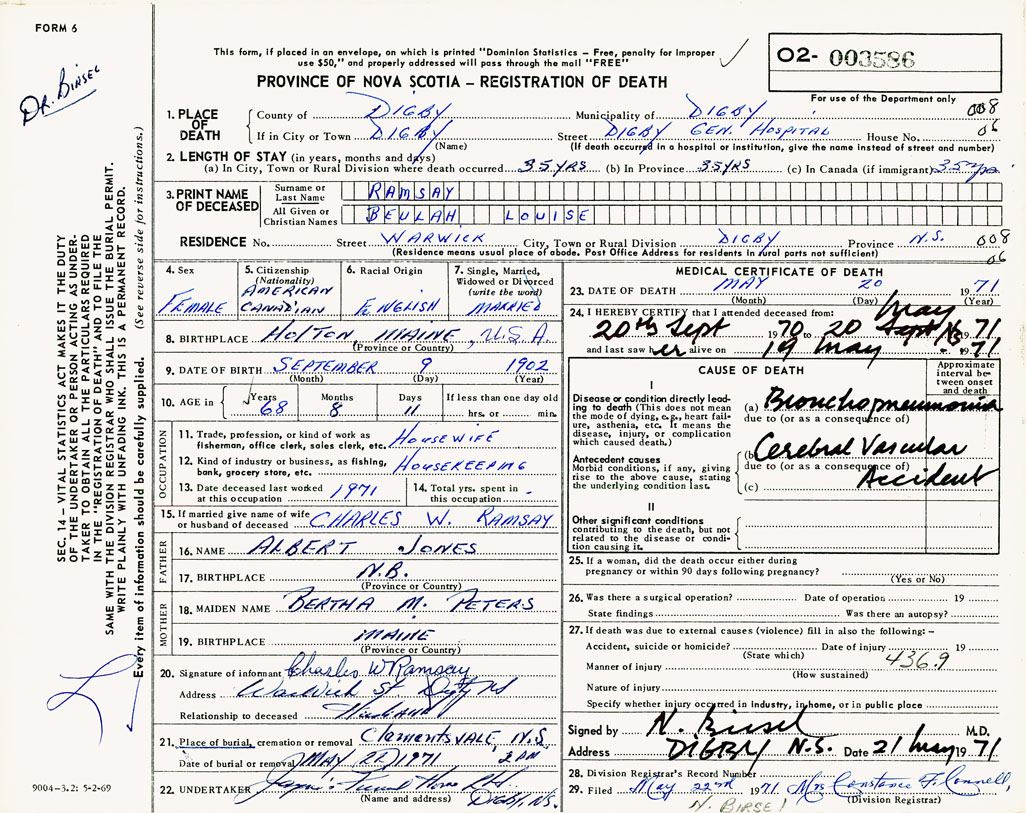 FORM 6
DR. BIRSEL
This form, if placed in an envelope, on which is printed "Dominion Statistics – Free, penalty for improper
use $50," and properly addressed will pass through the mail "FREE"
PROVINCE OF NOVA SCOTIA – REGISTRATION OF DEATH
O2- 003586
For use of the Department only
1. PLACE OF DEATH
County of DIGBY Municipality of DIGBY 008
If in City or Town DIGBY Street DIGBY GEN. HOSPITAL House No. 06
(Name) (If death occurred in a hospital or institution, give the name instead of street and number)
2. LENGTH OF STAY (in years, months and days)
(a) In City, Town or Rural Division where death occurred 35 YRS (b) In Province 35 YRS (c) In Canada (if immigrant) 35 yrs
3. PRINT NAME OF DECEASED
Surname or Last Name RAMSAY
All Given or Christian Names BEULAH LOUISE
RESIDENCE No. Street WARWICK City, Town or Rural Division DIGBY Province N.S. 008
(Residence means usual place of abode. Post Office Address for residents in rural parts not sufficient) 06
4. Sex
FEMALE
5. Citizenship
(Nationality)
AMERICAN
CANADIAN
6. Racial Origin
ENGLISH
7. Single, Married,
Widowed or Divorced
(write the word)
MARRIED
8. BIRTHPLACE HOLTON MAINE, U.S.A.
(Province or Country)
9. DATE OF BIRTH SEPTEMBER 9 1902
(Month) (Day) (Year)
10. AGE in Years Months Days If less than one day old
68 8 11 hrs. or min.
OCCUPATION
11. Trade, profession, or kind of work as
fisherman, office clerk, sales clerk, etc. HOUSEWIFE
12. Kind of industry or business, as fishing,
bank, grocery store, etc. HOUSEKEEPING
13. Date deceased last worked
at this occupation 1971
14. Total yrs. spent in
this occupation -
15. If married give name of wife
or husband of deceased CHARLES W. RAMSAY
FATHER
16. NAME ALBERT JONES
17. BIRTHPLACE N.B.
(Province or Country)
MOTHER
18. MAIDEN NAME BERTHA M. PETERS
19. BIRTHPLACE MAINE
(Province or Country)
20. Signature of informant Charles W Ramsay
Address Warwick St Digby NS
Relationship to deceased Husband
21. Place of burial, cremation or removal CLEMENTSVALE, N.S.
Date of burial or removal MAY 22, 1971 2 PM
22. UNDERTAKER Funeral Home Ltd.
(Name and address) DIGBY, NS.
MEDICAL CERTIFICATE OF DEATH
23. DATE OF DEATH MAY 20 1971
(Month) (Day) (Year)
24. I HEREBY CERTIFY that I attended deceased from:
May
20th Sept 1970 to 20 Sept 1971
and last saw her alive on 19 May 1971
CAUSE OF DEATH
Approximate interval between onset and death
I
Disease or condition directly leading to death (This does not
mean the mode of dying, e.g., heart failure, asthenia, etc. It means the
disease, injury, or complication
which caused death.)
(a) Bronchopneumonia
due to (or as a consequence of)
Antecedent causes
Morbid conditions, if any, giving
rise to the above cause, stating
the underlying condition last.
(b) Cerebral Vascular
due to (or as a consequence of)
(c) Accident
II
Other significant conditions
contributing to the death, but not
related to the disease or condition causing it.
25. If a woman, did the death occur either during
pregnancy or within 90 days following pregnancy?
(Yes or No)
26. Was there a surgical operation? Date of operation 19
State findings Was there an autopsy?
27. If death was due to external causes (violence) fill in also the following: –
Accident, suicide or homicide? Date of injury 19
(State which) 436.9
Manner of injury
(How sustained)
Nature of injury
Specify whether injury occurred in industry, in home, or in public place
Signed by N. Birsel M.D.
Address DIGBY N.S. Date 21 May 1971
28. Division Registrar's Record Number
29. Filed May 22nd 1971 Mrs Constance F. Connell,
(Division Registrar)
N. BIRSEL
SEC. 14 – VITAL STATISTICS ACT MAKES IT THE DUTY
OF THE UNDERTAKER OR PERSON ACTING AS UNDERTAKER
TO OBTAIN ALL THE PARTICULARS REQUIRED
IN THE "REGISTRATION OF DEATH" AND TO FILE THE
SAME WITH THE DIVISION REGISTRAR WHO SHALL ISSUE THE BURIAL PERMIT.
WRITE PLAINLY WITH UNFADING INK. THIS IS A PERMANENT RECORD.
Every item of information should be carefully supplied. (See reverse side for instructions.)
9004-3.2: 5-2-69